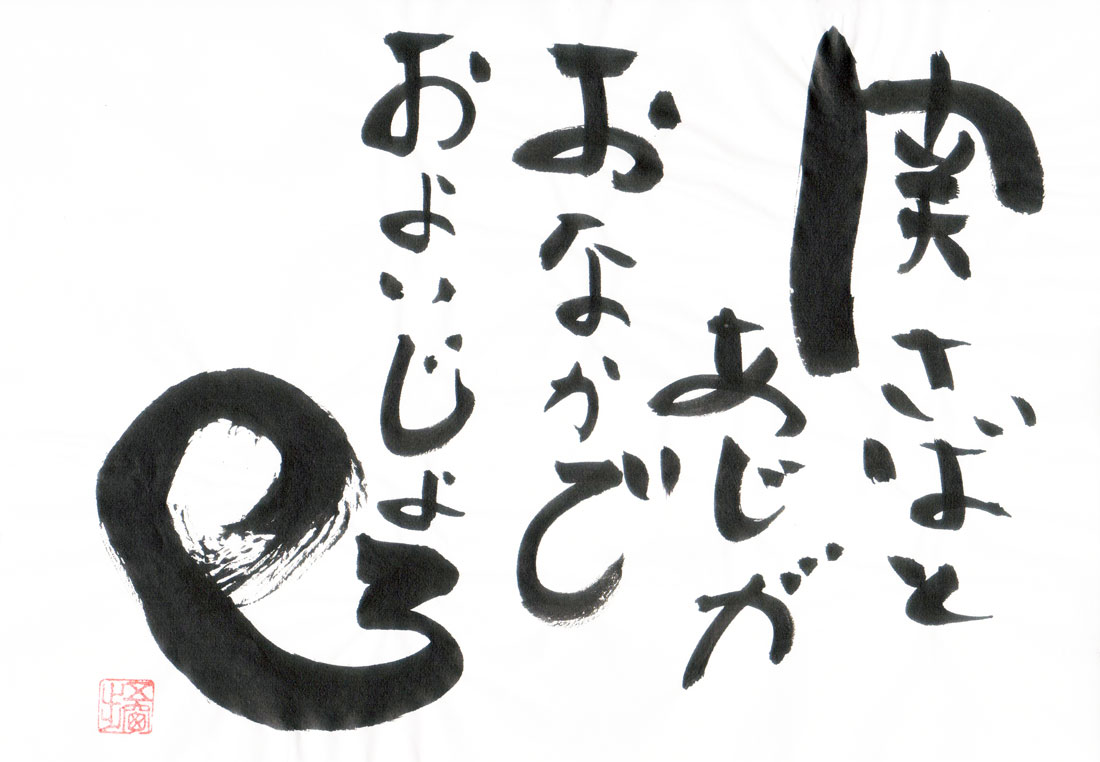 関さばと
あじが
おなかで
およいじょる